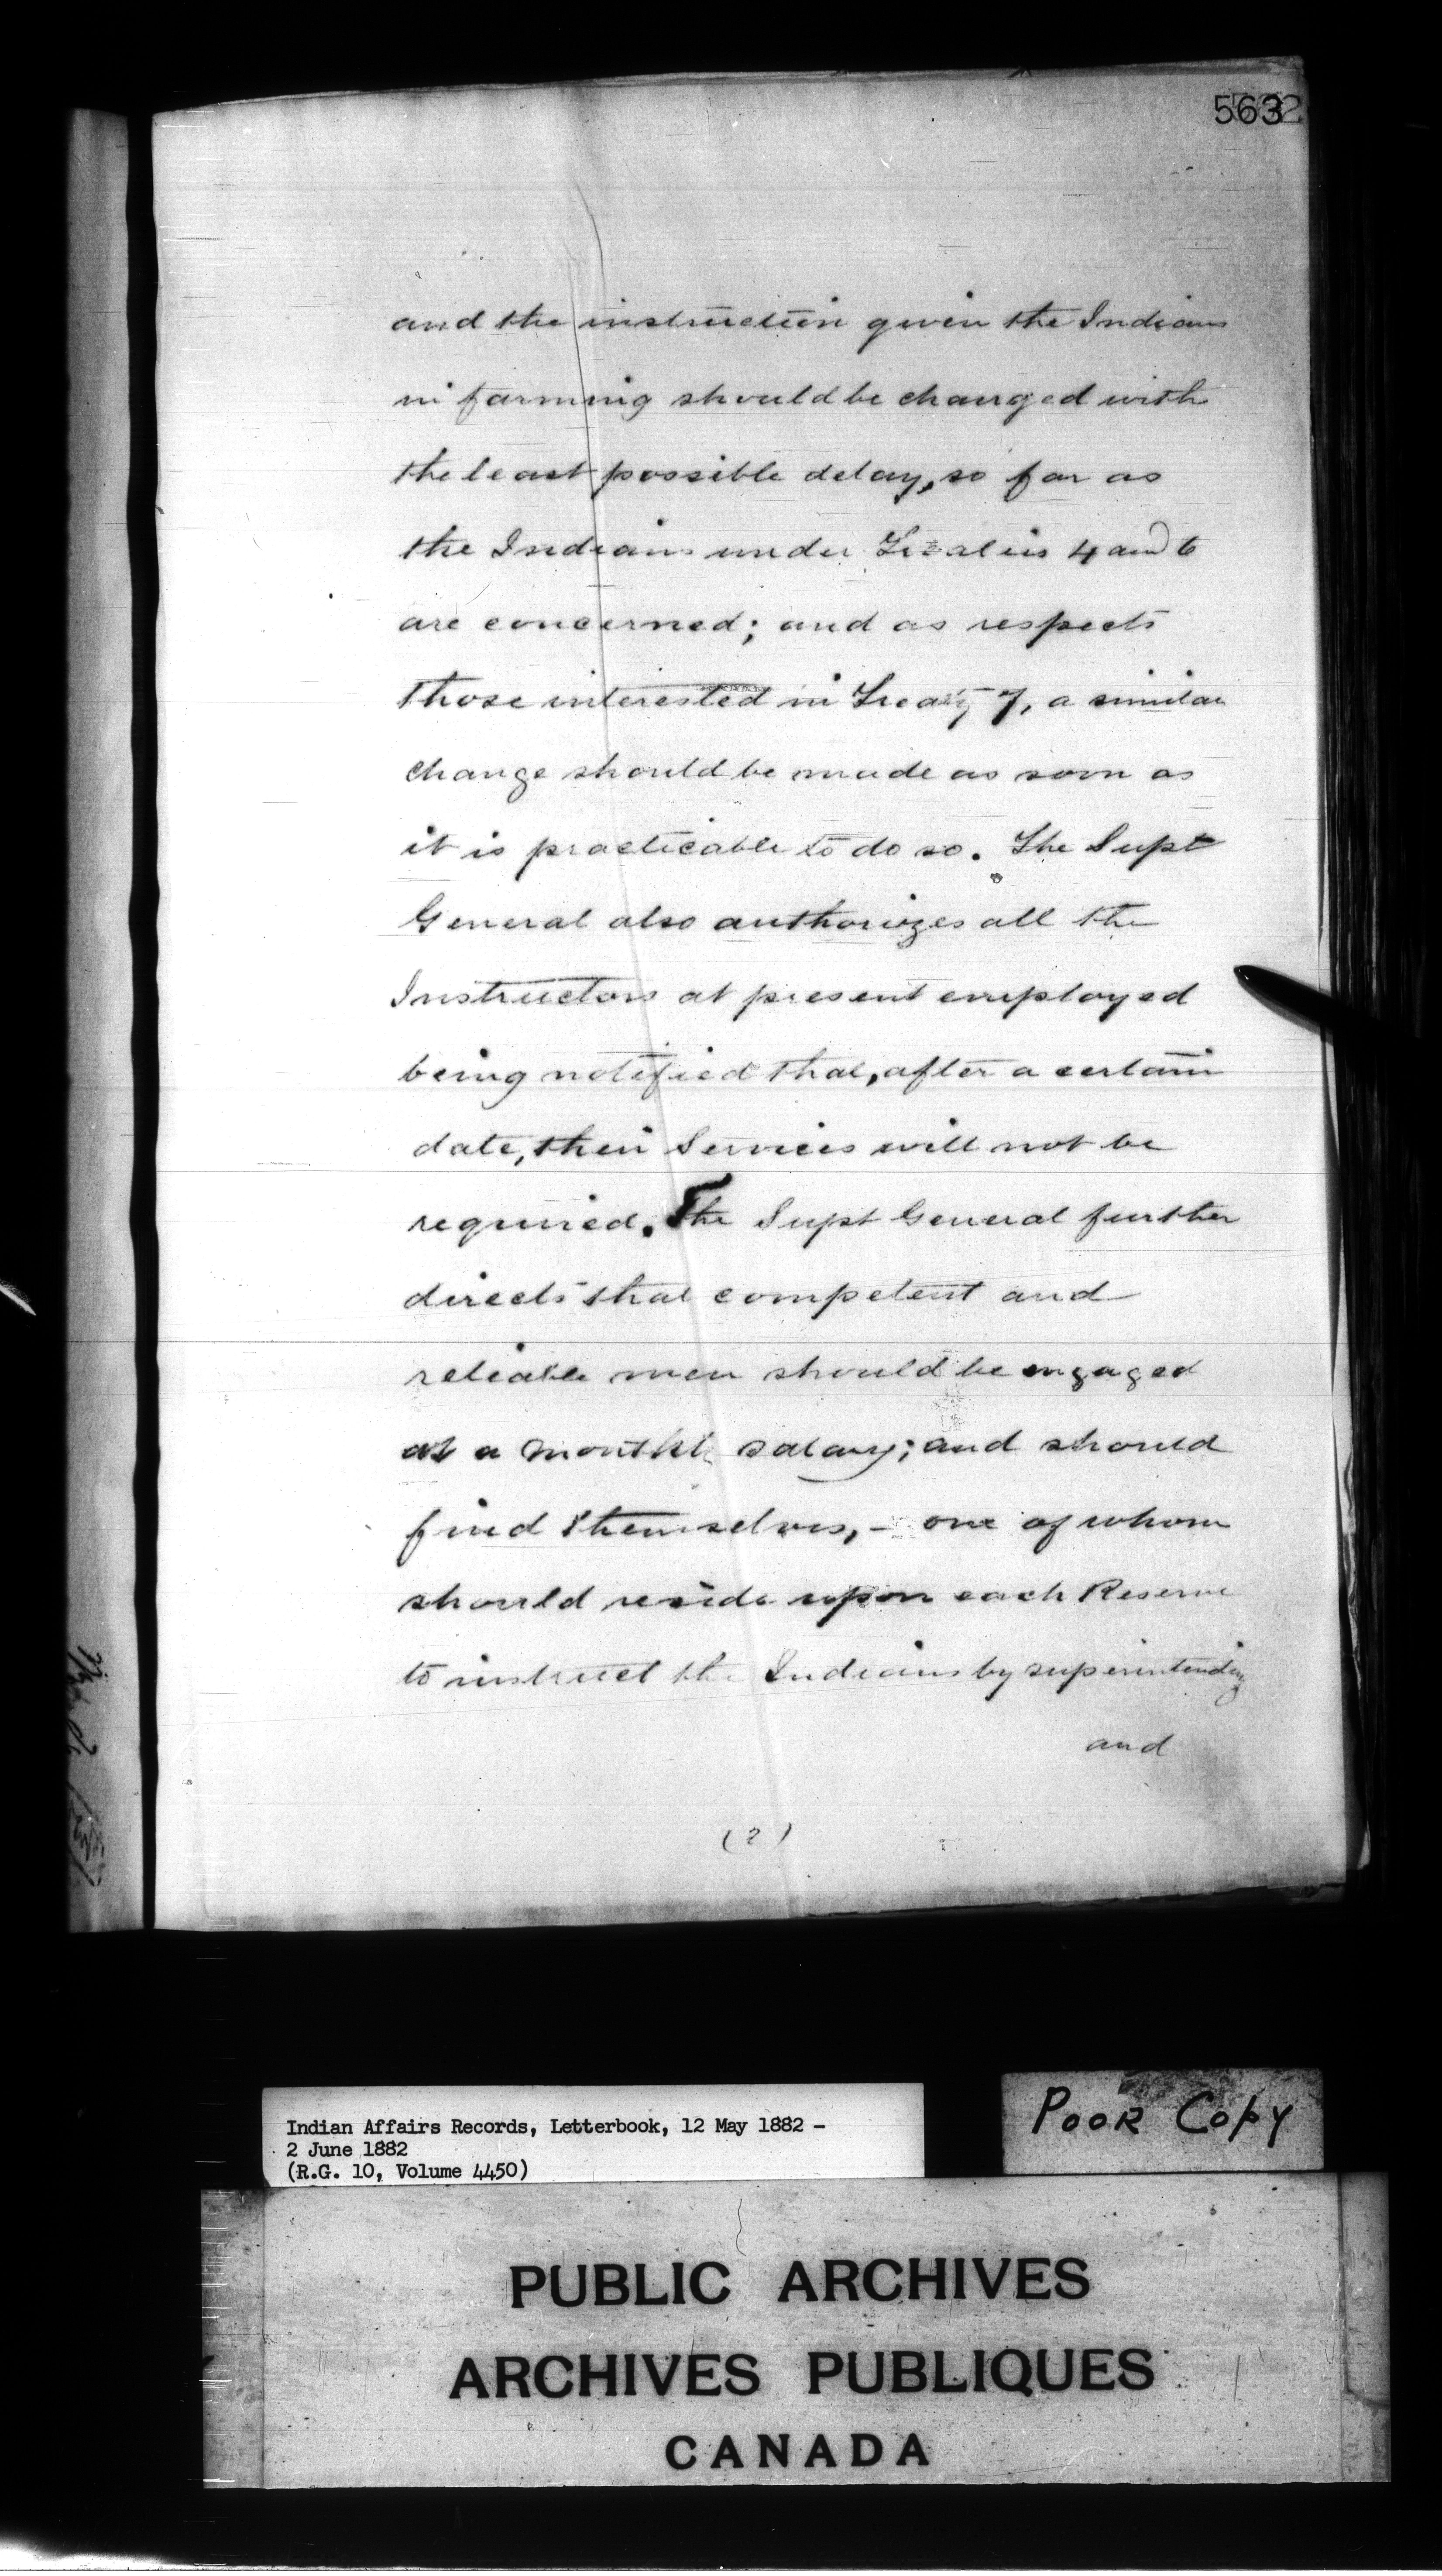 563
and the instruction given the Indians
in farming should be changed with
the least possible delay, so far as
the Indians under Treaties 4 and 6
are concerned; and as respects
those interested in Treaty 7, a similar
change should be made as soon as
it is practicable to do so. The Supt
General also authorizes all the
Instructors at present employed
being notified that, after a certain
date, their Services will not be
required. The Supt General further
directs that competent and
reliable men should be engaged
at a monthly salary; and should
find themselves, - one of whom
should reside upon each Reserve
to instruct the Indians by superintending
and
(2)
Indian Affairs Records, Letterbook, 12 May 1882 -
2 June 1882
(R.G. 10, Volume 4450)
Poor Copy
PUBLIC ARCHIVES
ARCHIVES PUBLIQUES
CANADA